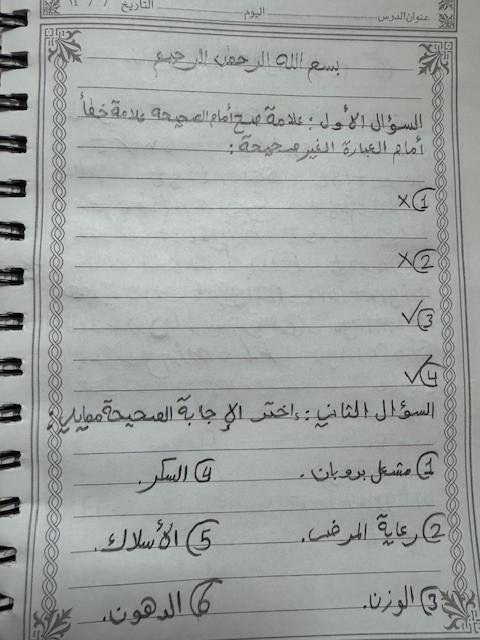 عنوان الدرس اليوم التاريخ / / ١٤
بسم الله الرحمن الرحيم
السؤال الأول: علامة صح أمام الصحيحة علامة خطأ
أمام العبارة الغير صحيحة:
1 ×
2 ×
3 ✓
4 ✓
السؤال الثاني: اختر الإجابة الصحيحة ممايلي:
1 مشعل بروبان. 4 السكر.
2 رعاية المرضى. 5 الأسلاك.
3 الوزن. 6 الدهون.